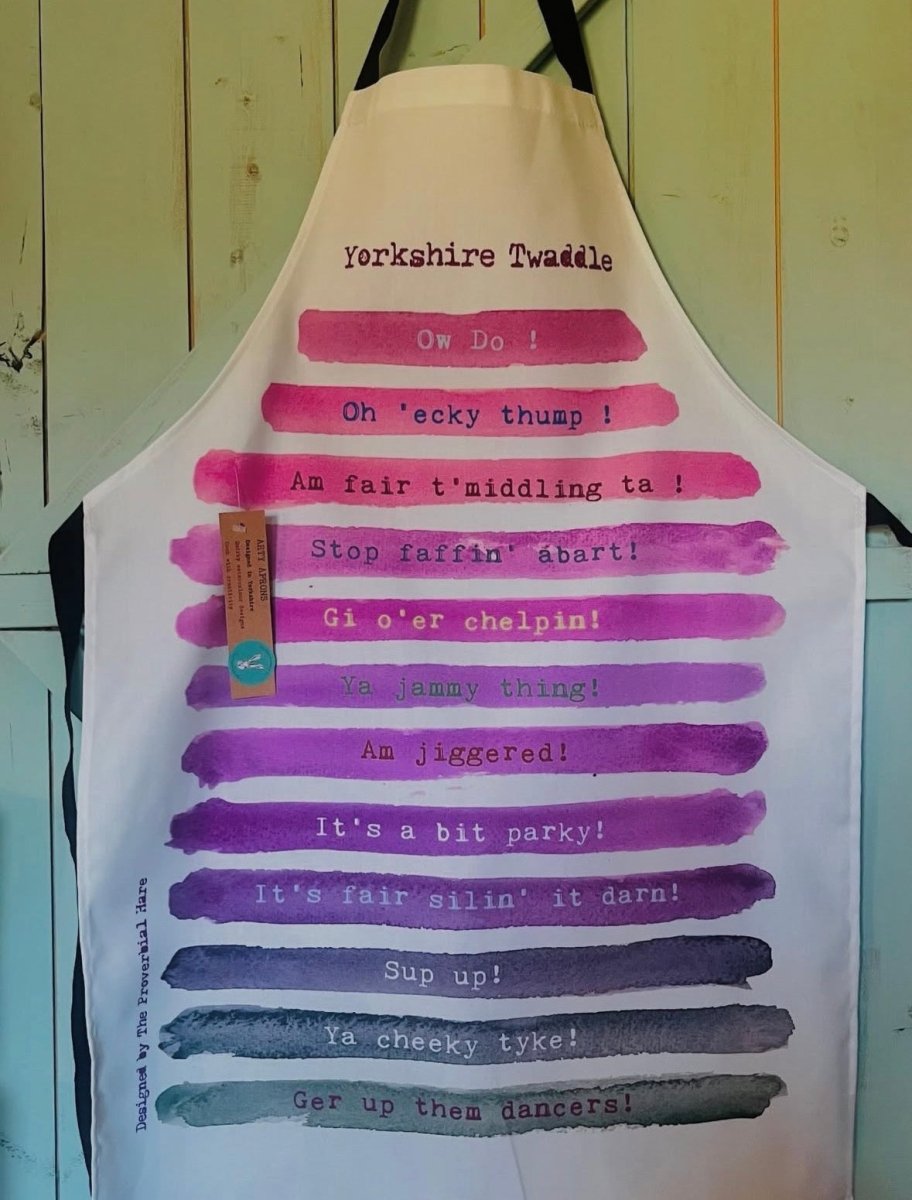 Yorkshire Twaddle
Ow Do !
Oh 'ecky thump !
Am fair t'middling ta !
Stop faffin' abart!
Gi o'er chelpin!
Ya jammy thing!
Am jiggered!
It's a bit parky!
It's fair silin' it darn!
Sup up!
Ya cheeky tyke!
Ger up them dancers!
ARTY APRONS
Designed in Yorkshire
Quirky watercolour Designs
Designed by The Proverbial Hare